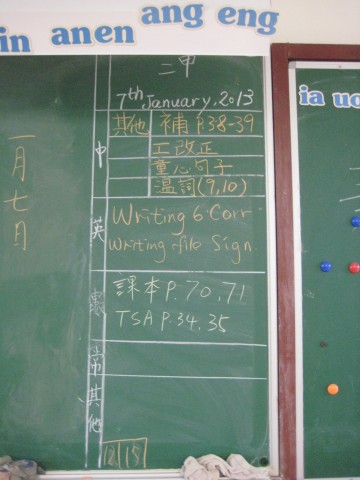 in an en ang eng
ia uo
二甲
7th January, 2013
一月七日
中
其他 補 P.38-39
工改正
童心句子
温詞(9,10)
英
Writing 6 Corr
Writing file Sign
數
課本 P.70,71
TSA P.34,35
常
其他
15